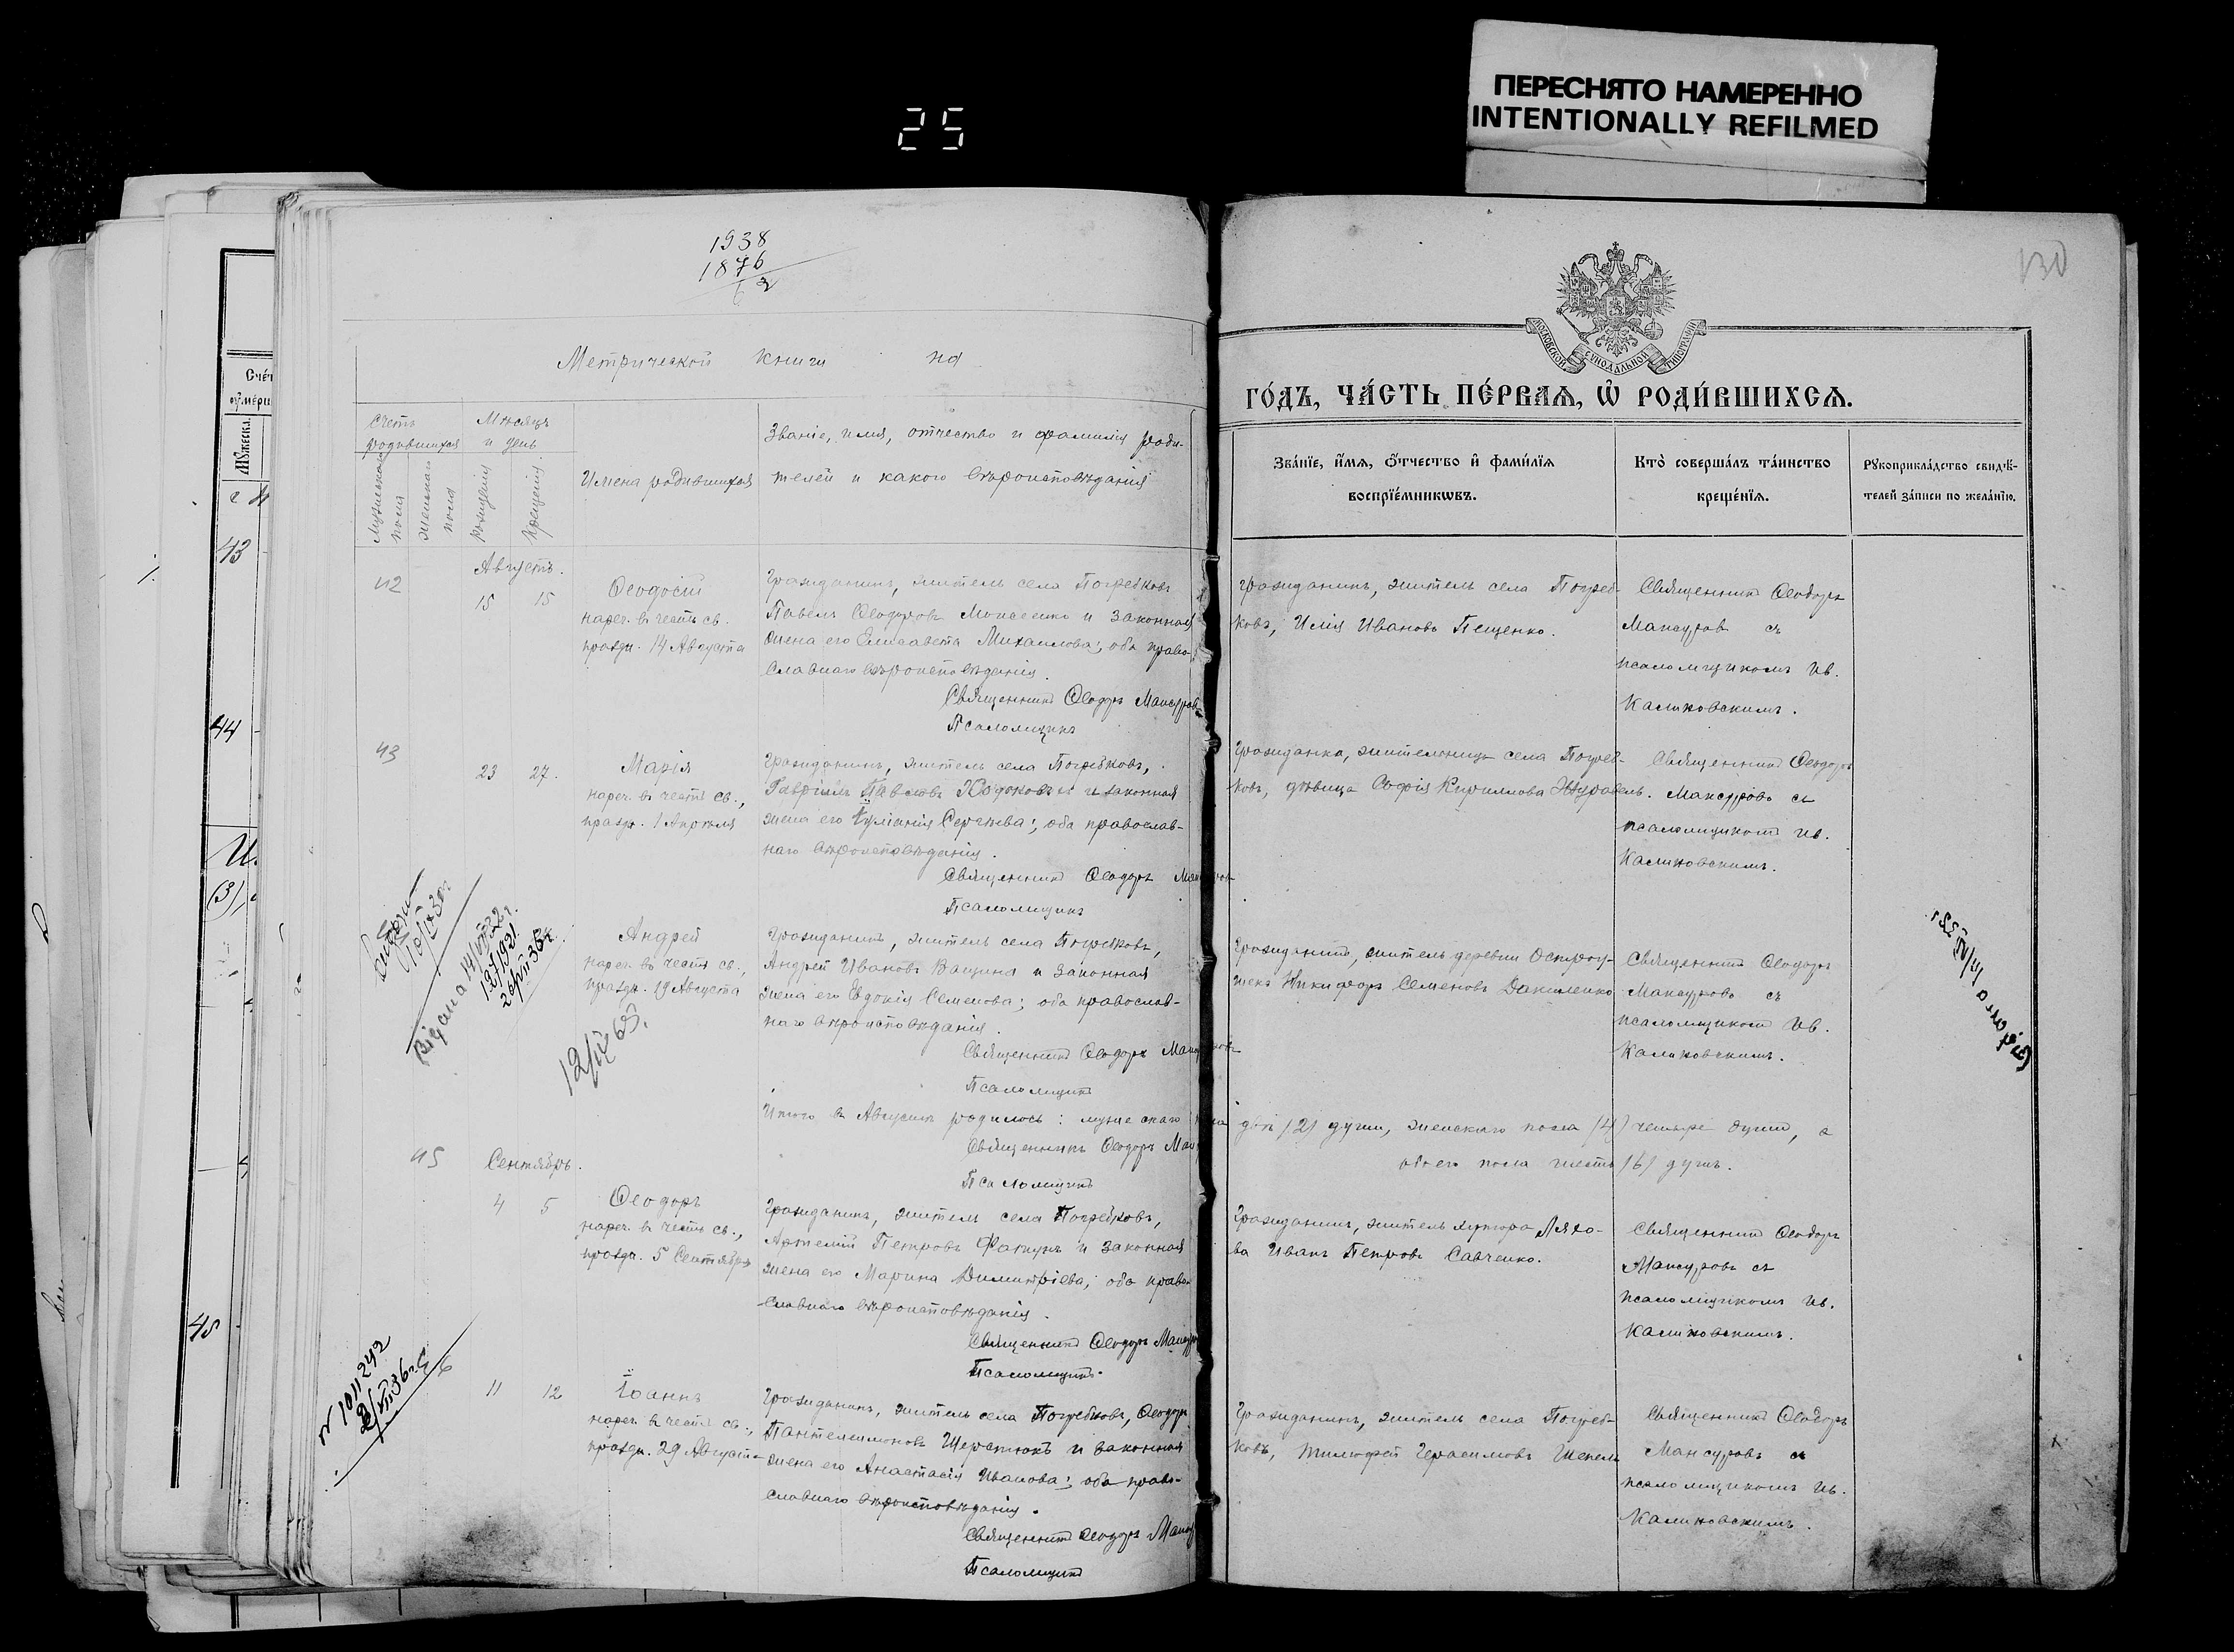 25
ПЕРЕСНЯТО НАМЕРЕННО
INTENTIONALLY REFILMED
1938
1876
62
130
Метрической книги на
Счетъ родившихся
Мужескаго пола
Женскаго пола
Мѣсяцъ и день
Рожденія
Крещенія
Имена родившихся
Званіе, имя, отчество и фамилія роди-
телей и какого вѣроисповѣданія
МОСКОВСКОЙ СѴНОДАЛЬНОЙ ТИПОГРАФІИ
ГО́ДЪ, ЧА́СТЬ ПЕ́РВАѦ, Ѡ҆ РОДИ́ВШИХСѦ.
Зва́нїе, и҆́мѧ, ѻ҆́тчество и҆ фами́лїѧ
воспрїе́мникѡвъ.
Кто̀ соверша́лъ та́инство
креще́нїѧ.
Рꙋкоприкла́дство свидѣ́-
телей за́писи по жела́нїю.
Августъ.
42
15 15
Ѳеодосій
нареч. въ честь св.
праздн. 14 Августа
Гражданинъ, житель села Погребковъ
Павелъ Ѳеодоровъ Моисеенко и законная
жена его Елисавета Михаилова; оба право-
славнаго вѣроисповѣданія.
Священникъ Ѳеодоръ Мансуровъ
Псаломщикъ
Гражданинъ, житель села Погреб-
ковъ, Илія Ивановъ Пещенко.
Священникъ Ѳеодоръ
Мансуровъ съ
псаломщикомъ Ив.
Калиновскимъ.
43
23 27.
Марія
нареч. въ честь св.,
праздн. 1 Апрѣля
Гражданинъ, житель села Погребковъ,
Гавріилъ Павловъ и законная
жена его Іуліанія Сергѣева; оба православ-
наго вѣроисповѣданія.
Священникъ Ѳеодоръ Мансуровъ
Псаломщикъ
Гражданка, жительница села Погреб-
ковъ, дѣвица Софія Кириллова Журавель.
Священникъ Ѳеодоръ
Мансуровъ съ
псаломщикомъ Ив.
Калиновскимъ.
Андрей
нареч. въ честь св.,
праздн. 19 Августа
Гражданинъ, житель села Погребковъ,
Андрей Ивановъ Ващина и законная
жена его Евдокія Семенова; оба православ-
наго вѣроисповѣданія.
Священникъ Ѳеодоръ Мансуровъ
Псаломщикъ
Гражданинъ, житель деревни Острогу-
шекъ Никифоръ Семеновъ Даниленко
Священникъ Ѳеодоръ
Мансуровъ съ
псаломщикомъ Ив.
Калиновскимъ.
Итого въ Августѣ родилось: мужескаго пола двѣ /2/ души, женскаго пола /4/ четыре души, а
обоего пола шесть /6/ душъ.
Священникъ Ѳеодоръ
Псаломщикъ
45
Сентябрь.
4 5
Ѳеодоръ
нареч. въ честь св.,
праздн. 5 Сентября
Гражданинъ, житель села Погребковъ,
Артемій Петровъ и законная
жена его Марина Димитріева; оба право-
славнаго вѣроисповѣданія.
Священникъ Ѳеодоръ
Псаломщикъ.
Гражданинъ, житель хутора Ляхо-
ва Иванъ Петровъ Савченко.
Священникъ Ѳеодоръ
Мансуровъ съ
псаломщикомъ Ив.
Калиновскимъ.
46
11 12
Іоаннъ
нареч. въ честь св.,
праздн. 29 Августа
Гражданинъ, житель села Погребковъ, Ѳеодоръ
Пантелеимоновъ Шерстюкъ и законная
жена его Анастасія Иванова; оба право-
славнаго вѣроисповѣданія.
Священникъ Ѳеодоръ
Псаломщикъ
Гражданинъ, житель села Погреб-
ковъ, Тимофей Герасимовъ Шепель
Священникъ Ѳеодоръ
Мансуровъ съ
псаломщикомъ Ив.
Калиновскимъ.
43
44
45